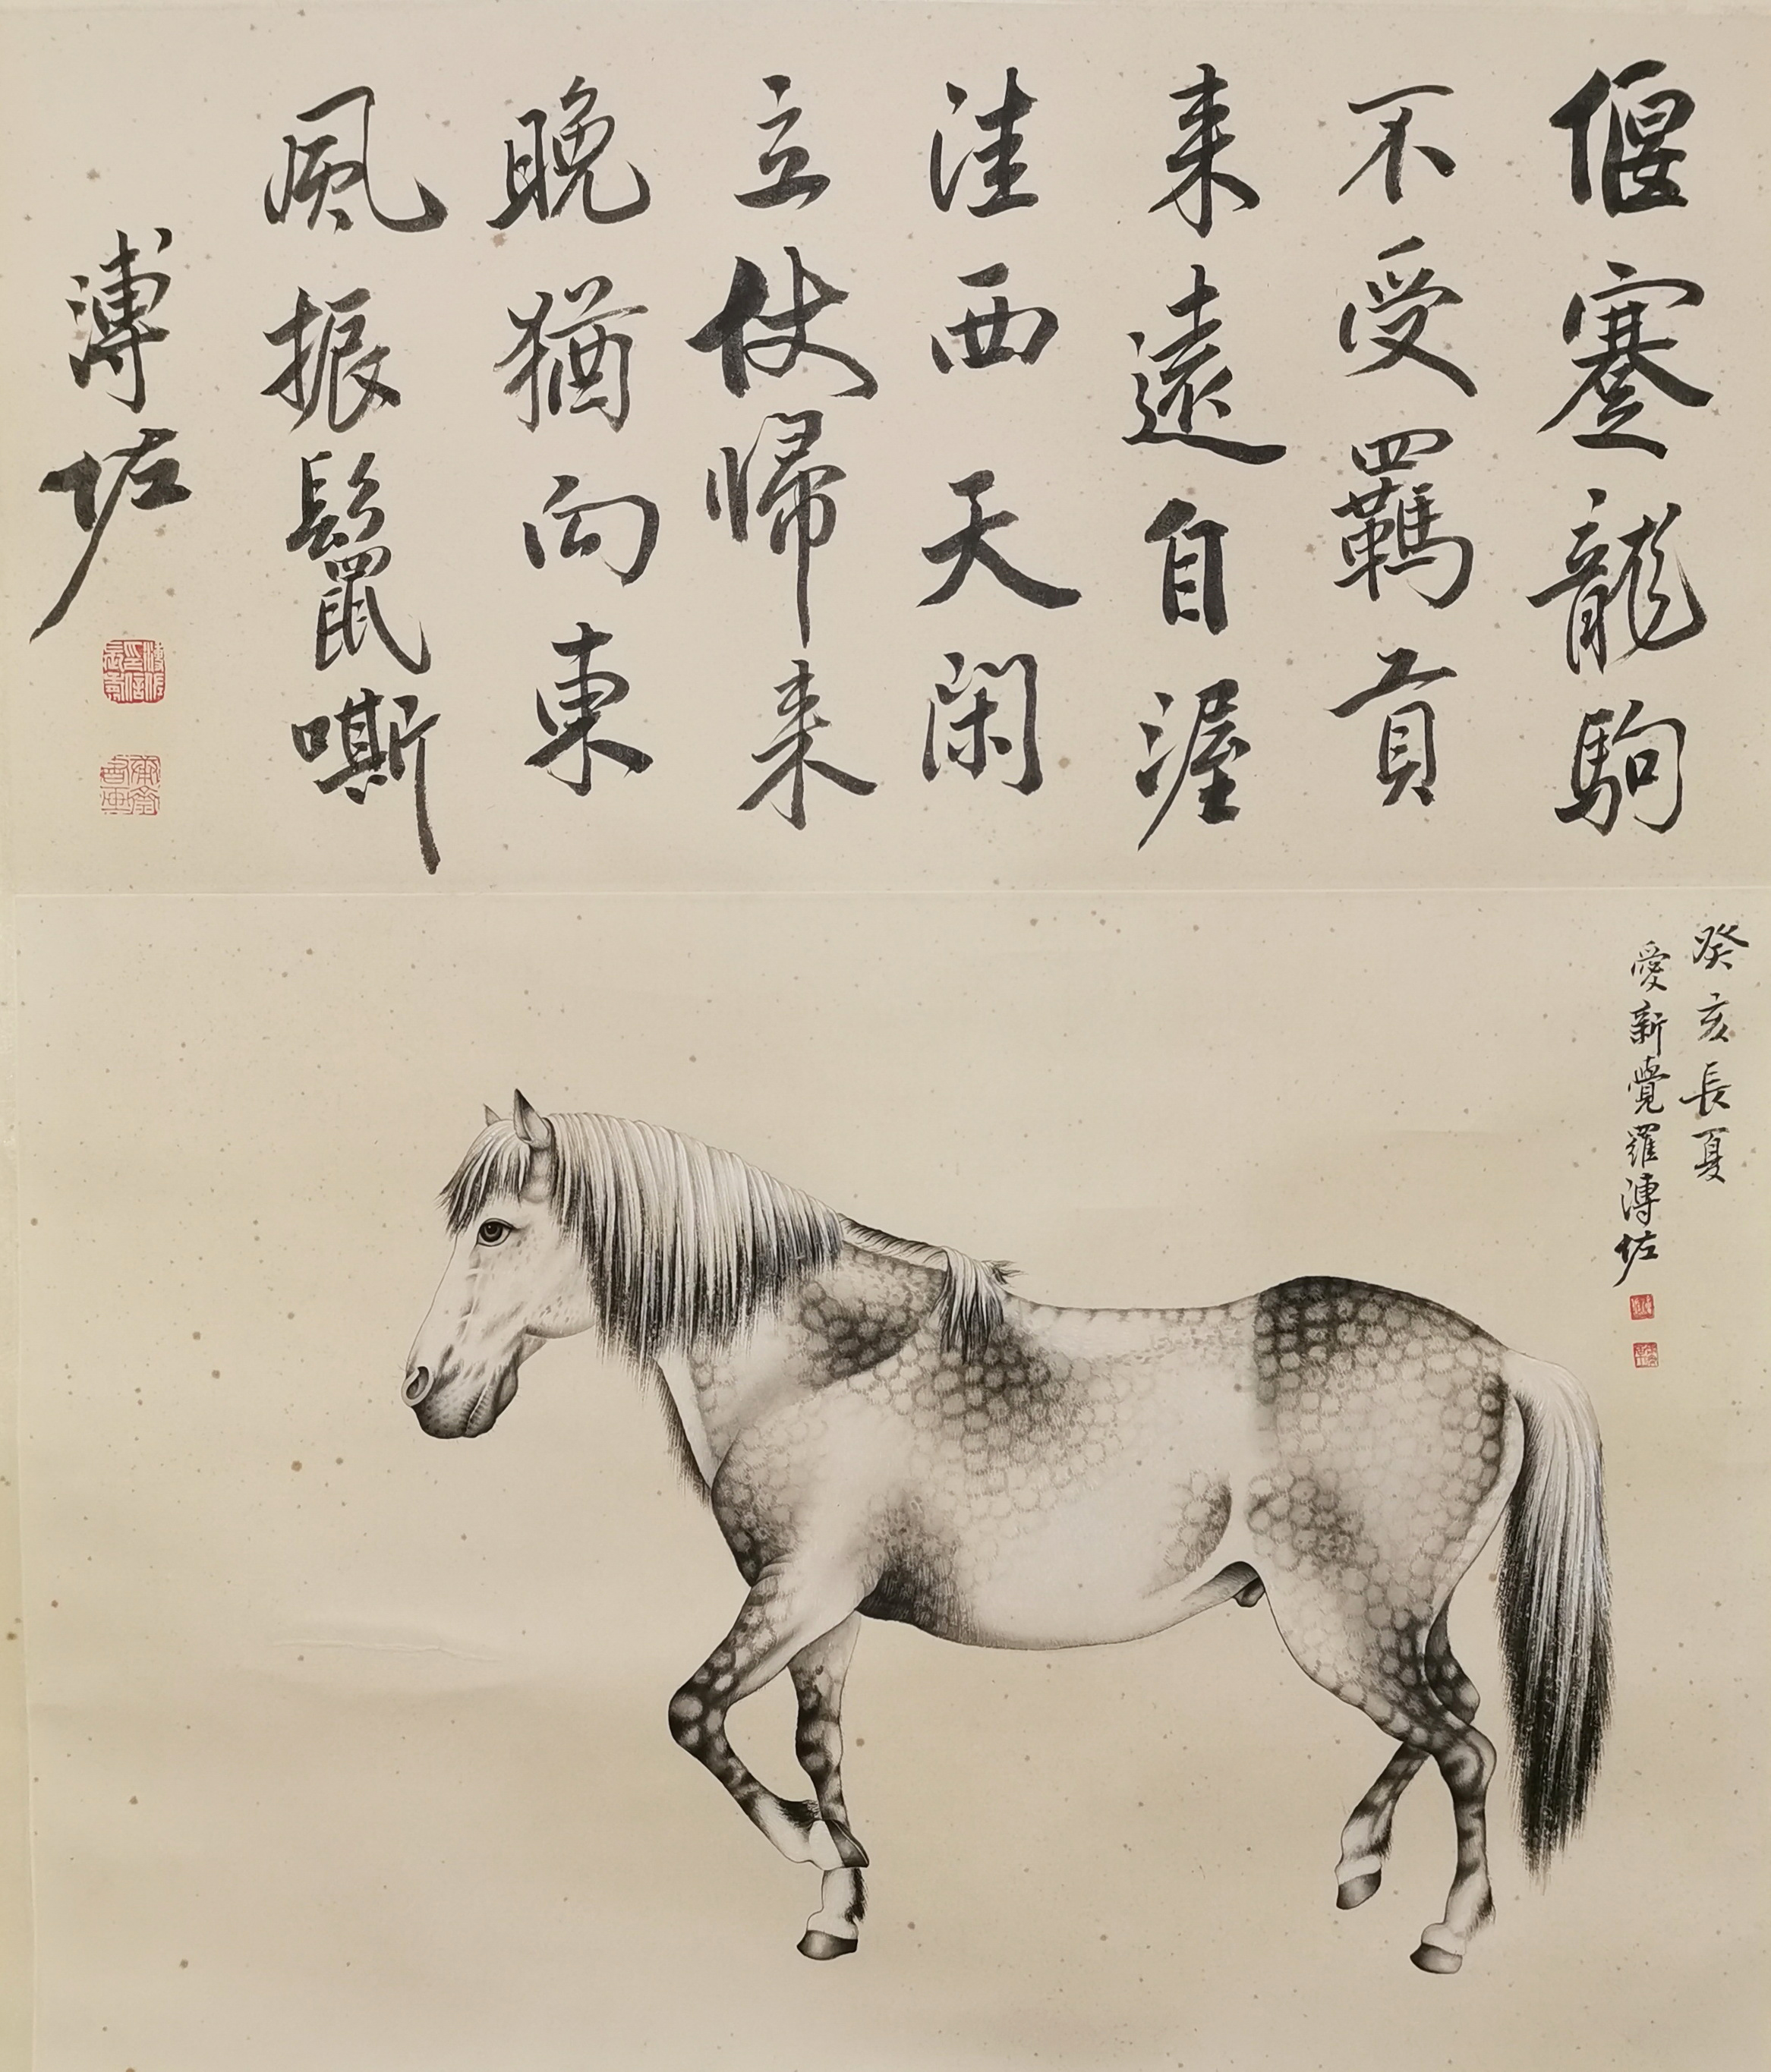 偃蹇龍駒
不受羈貢
来遠自渥
洼西天閑
立仗帰来
晚猶向東
風振鬛嘶
溥佐
癸亥長夏
愛新覺羅溥佐